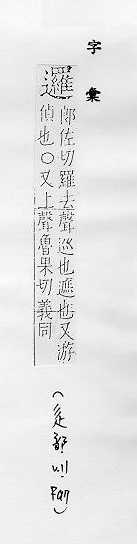 字彙
邏
郎佐切羅去聲巡也遮也又游
偵也○又上聲魯果切義同